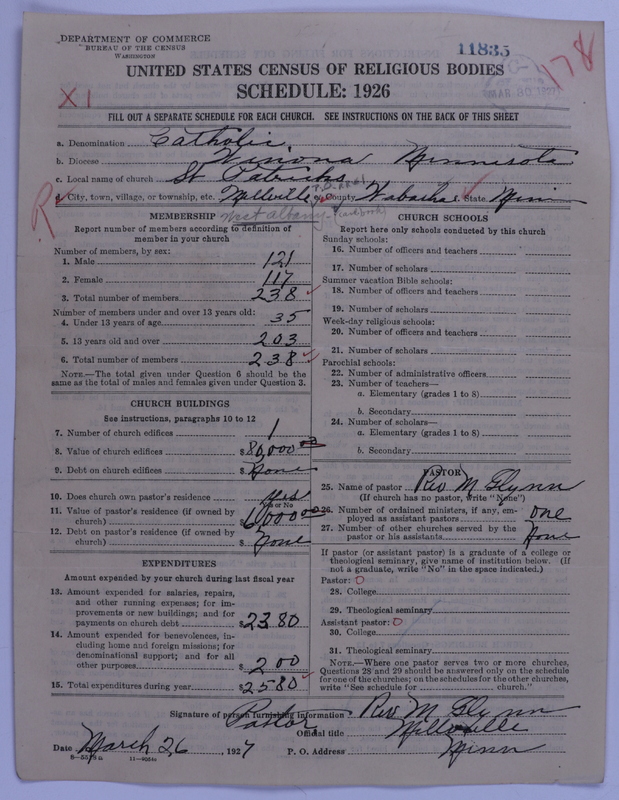 DEPARTMENT OF COMMERCE
BUREAU OF THE CENSUS
WASHINGTON
11835
178
MAR 30 1927
UNITED STATES CENSUS OF RELIGIOUS BODIES
SCHEDULE: 1926
X1
FILL OUT A SEPARATE SCHEDULE FOR EACH CHURCH. SEE INSTRUCTIONS ON THE BACK OF THIS SHEET
a. Denomination Catholic
b. Diocese Winona Minnesota
c. Local name of church St Patricks
d. City, town, village, or township, etc. Millville e. County Wabasha f. State Minn
West Albany
R
MEMBERSHIP
Report number of members according to definition of member in your church
Number of members, by sex:
1. Male 121
2. Female 117
3. Total number of members 238
Number of members under and over 13 years old:
4. Under 13 years of age 35
5. 13 years old and over 203
6. Total number of members 238
NOTE.—The total given under Question 6 should be the same as the total of males and females given under Question 3.
CHURCH BUILDINGS
See instructions, paragraphs 10 to 12
7. Number of church edifices 1
8. Value of church edifices $80,000 00
9. Debt on church edifices $None
10. Does church own pastor's residence Yes
Yes or No
11. Value of pastor's residence (if owned by church) $6,000 00
12. Debt on pastor's residence (if owned by church) $None
EXPENDITURES
Amount expended by your church during last fiscal year
13. Amount expended for salaries, repairs, and other running expenses; for improvements or new buildings; and for payments on church debt $2380
14. Amount expended for benevolences, including home and foreign missions; for denominational support; and for all other purposes $200
15. Total expenditures during year $2580
CHURCH SCHOOLS
Report here only schools conducted by this church
Sunday schools:
16. Number of officers and teachers
17. Number of scholars
Summer vacation Bible schools:
18. Number of officers and teachers
19. Number of scholars
Week-day religious schools:
20. Number of officers and teachers
21. Number of scholars
Parochial schools:
22. Number of administrative officers
23. Number of teachers—
a. Elementary (grades 1 to 8)
b. Secondary
24. Number of scholars—
a. Elementary (grades 1 to 8)
b. Secondary
PASTOR
25. Name of pastor Rev M Glynn
(If church has no pastor, write "None")
26. Number of ordained ministers, if any, employed as assistant pastors one
27. Number of other churches served by the pastor or his assistants None
If pastor (or assistant pastor) is a graduate of a college or theological seminary, give name of institution below. (If not a graduate, write "No" in the space indicated.)
Pastor: O
28. College
29. Theological seminary
Assistant pastor: O
30. College
31. Theological seminary
NOTE.—Where one pastor serves two or more churches, Questions 28 and 29 should be answered only on the schedule for one of the churches; on the schedules for the other churches, write "See schedule for church."
Signature of person furnishing information Rev M Glynn
Pastor
Official title Millville
Date March 26, 1927 P. O. Address Minn
11—9054a